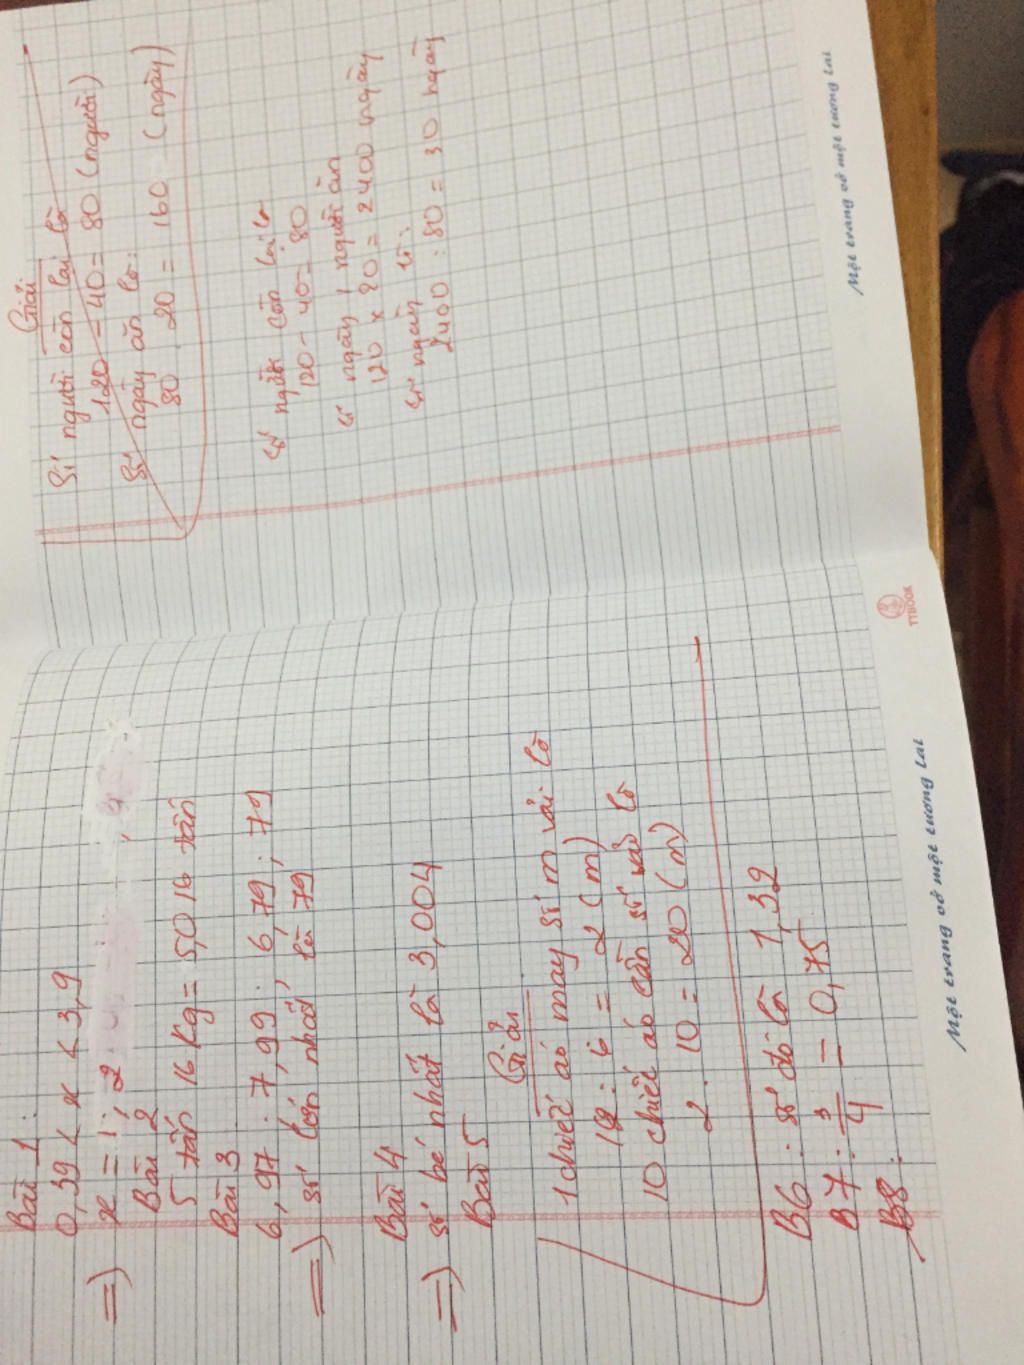 Bài 1:
0,39 < x < 3,9
=> x = 1; 2
Bài 2
5 tấn 16 Kg = 5,016 tấn
Bài 3
6,97 ; 7,99 ; 6,79 ; 79
=> số lớn nhất là 79
Bài 4
=> số bé nhất là 3,004
Bài 5
Giải
1 chiếc áo may số m vải là
12 : 6 = 2 (m)
10 chiếc áo cần số vải là
2 . 10 = 20 (m)
B6 : số đó là 1,32
B7 : 3/4 = 0,75
B8:
Một trang vở một tương lai
TTBOOK
Giải
Số người còn lại là
120 - 40 = 80 (người)
Số ngày ăn là:
80 . 20 = 160 (ngày)
Số người còn lại là
120 - 40 = 80
Số ngày 1 người ăn
120 x 20 = 2400 ngày
Số ngày là:
2400 : 80 = 30 ngày
Một trang vở một tương lai